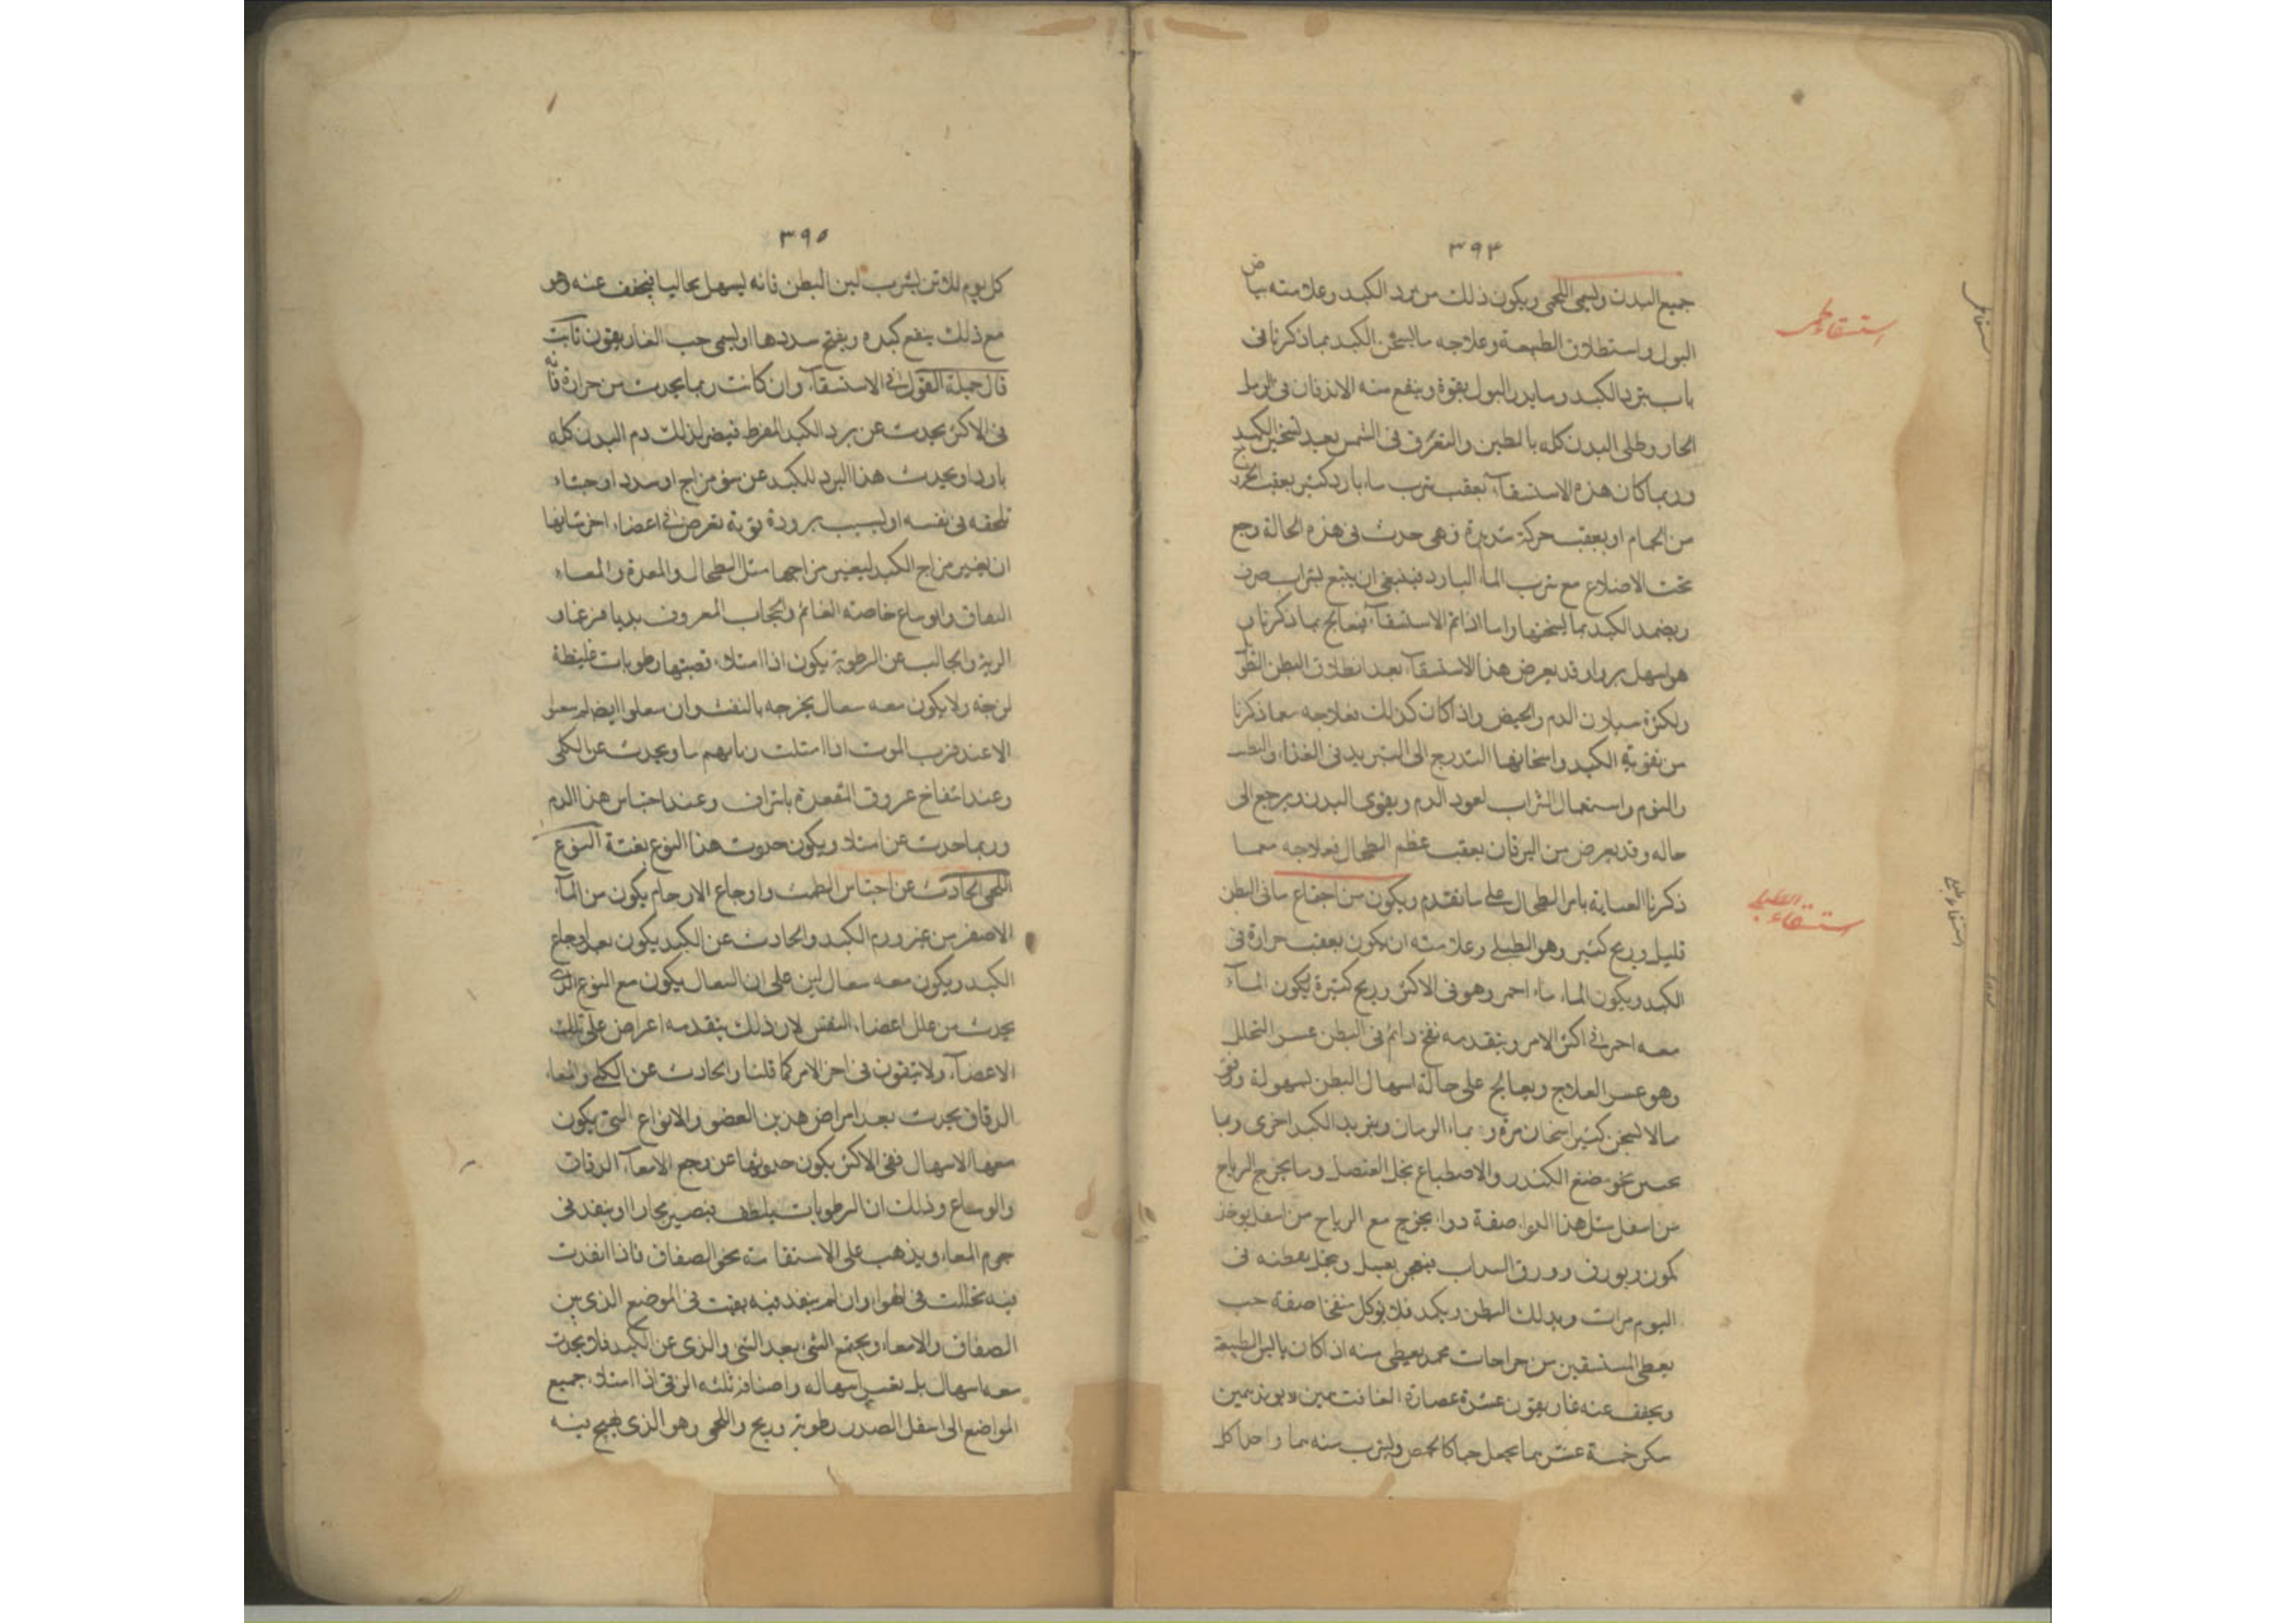 ٣٩٤
جميع البدن ويسمى اللحمى ويكون ذلك من برد الكبد وعلامته بياض
استسقاء لحمى
البول واستطلاق الطبيعة وعلاجه ما يسخن الكبد بما ذكرنا فى
باب برد الكبد وما يدر البول بقوة وينفع منه الاندفان فى الرمل
الحار وطلى البدن كله بالطين والتعرق فى الشمس بعد تسخين الكبد
وربما كان هذه الاستسقآء بعقب شرب ماء بارد كثير بعقب الخروج
من الحمام او بعقب حركة شديدة فهى حدث فى هذه الحالة وجع
تحت الاضلاع مع شرب المآء البارد فينبغى ان يتبع بشراب صرف
ويضمد الكبد بما يسخنها واما اذا تم الاستسقآء فيعالج بما ذكرنا و
هو اسهل برءا وقد يعرض هذا الاستسقآء بعد انطلاق البطن
ولكثرة سيلان الدم والحيض واذا كان كذلك فعلاجه مما ذكرنا
من تقوية الكبد واسخانها التدرج الى التبريد فى الغذاء
والنوم واستعمال الشراب لعود الدم ويقوى البدن ويرجع الى
حاله وقد يعرض من اليرقان بعقب عظم الطحال فعلاجه مما
ذكرنا العناية بامر الطحال على ما تقدم ويكون من اجتماع ما فى البطن
استسقاء الطبلى
قليل وريح كثير وهو الطبلى وعلامته ان يكون بعقب حرارة فى
الكبد ويكون الماء ماء احمر وهو فى الاكثر وريح كثيرة يكون المآء
معه احمر فى اكثر الامر ويتقدمه نفخ دائم فى البطن عسر التحلل
وهو عسر العلاج ويعالج على حالة اسهال البطن بسهولة ورفق
مالا يسخن كثير اسخان مرة و بماء الرمان وتبريد الكبد اخرى وبما
يحسن نحو مضغ الكندر والاصطباع بخل العنصل وما يخرج الرياح
من اسفل مثل هذا الدواء صفة دواء يخرج مع الرياح من اسفل يوخذ
كمون وبورق وورق السداب بعسل ويجعل بقطنه فى
اليوم مرات وبدلك البطن ويكمد فلا يوكل منفخا صفة حب
يعطى المستسقين من جراحات محمد يعطى منه اذا كان يابس الطبيعة
ويخفف عنه غاريقون عشرة عصارة الغافت
سكر خمسة عشر بما يجعل حبا كالحمص ويشرب منه بما واحدا كل
٣٩٥
كل يوم بلبن البطن فانه يسهل فيخفف عنه وهو
مع ذلك ينفع كبده ويفتح سددها او يسمى حب الغاريقون ثابت
قال جملة القول فى الاستسقآء وان كانت ربما يحدث من حرارة فانه
فى الاكثر يحدث عن برد الكبد المفرط فيصير لذلك دم البدن كله
باردا ويحدث هذا البرد للكبد عن سوء مزاج او سدد او جساء
تلحقه فى نفسه او لسبب برودة قوية تعرض فى اعضاء اخر شانها
ان يغير مزاج الكبد ليغير مزاجها مثل الطحال والمعدة والمعاء
الدقاق واوساع خاصته الغائم والحجاب المعروف بديافرغما و
الرية والجالب عن الرطوبة يكون اذا امتلاء قصبتها رطوبات غليظة
لزجة ولا يكون معه سعال يخرجه بالنفث وان سعلوا ايضا لم
الا عند قرب الموت اذا امتلت رياتهم ما ويحدث عن الكلى
وعند انتفاخ عروق المقعدة باشراف وعند احتباس هذا الدم
وربما حدث عن امتلاء ويكون حدوث هذا النوع بغتة النوع
اللحمى الحادث عن احتباس الطمث واوجاع الارحام يكون من المآء
الاصفر من غير ورم الكبد والحادث عن الكبد يكون بعد اوجاع
الكبد ويكون معه سعال لين على ان السعال يكون مع النوع الذى
يحدث من علل اعضاء التنفس لان ذلك يتقدمه اعراض على تلك
الاعضآء ولا يتقون فى اخر الامر كما قلنا والحادث عن الكلى والمعاء
الدقاق يحدث بعد امراض هذين العضو والانواع التى يكون
معها الاسهال ففى الاكثر يكون حدوثها عن وجع الامعآء الدقاق
والوساع وذلك ان الرطوبات يتلطف فيصير بخارا وينفذ فى
جرم المعاء ويذهب على الاستقامة نحو الصفاق فاذا انفدت
فيه تحللت فى الهواء وان لم ينفد فيه بقيت فى الموضع الذى بين
الصفاق والامعاء ويجتمع الشى بعد الشى والذى عن الكبد فلا يحدث
معه اسهال بل بغير اسهال واصنافه ثلثه الزقى اذا امتلاء جميع
المواضع الى اسفل الصدر رطوبة وريح واللحمى وهو الذى يهيج فيه